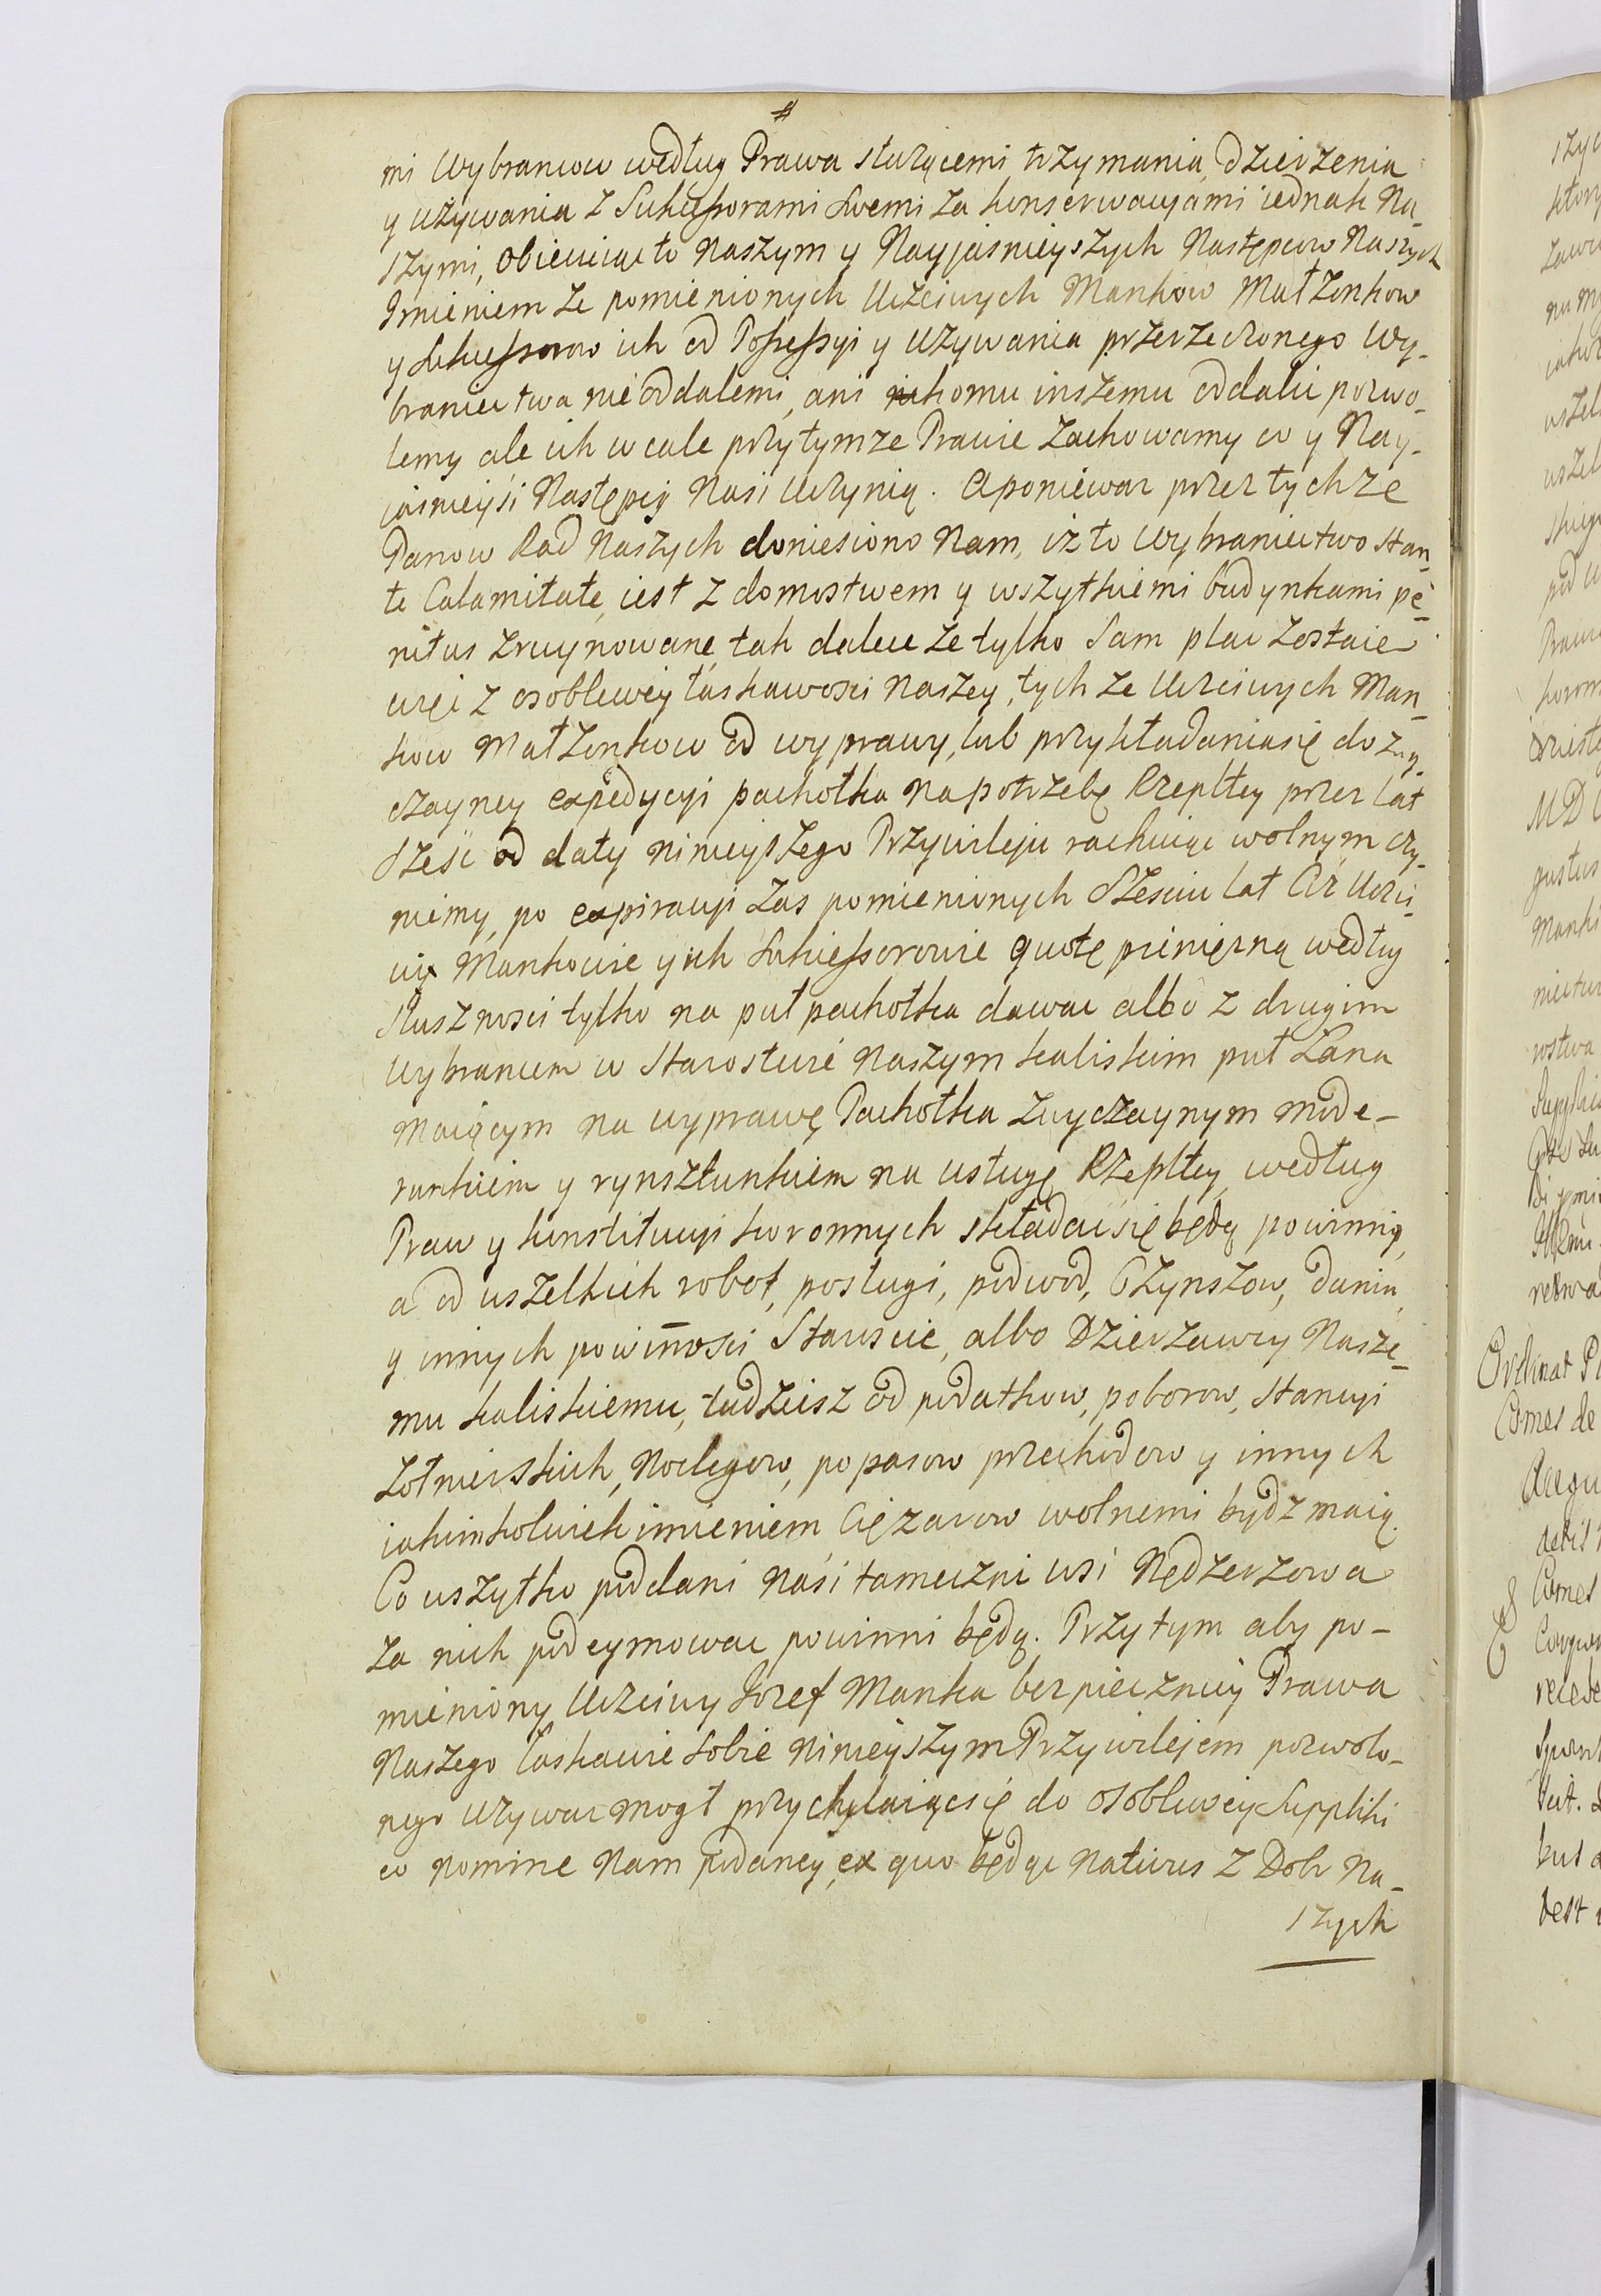 mi Wybrancow według Prawa służącemi, trzymania, dzierzenia
y używania z Sukcessorami Swemi za konserwacyami iednak Na
szymi, Obiecuiąc to Naszym y Nayjasnieyszych Następcow Naszych
Imieniem ze pomienionych Uczciwych Mankow Małzonkow
y Sukcessorow ich od Possessyi y Uzywania przerzeczonego Wy-
braniectwa nie oddalemi, ani nikomu inszemu oddalić pozwo-
lemy ale ich w cale przy tymze Prawie Zachowamy co y Nay-
iasnieyśi Następcy Naśi Uczynią. A poniewaz przez tychze
Panow Rad Naszych doniesiono Nam, iż to Wybraniectwo stan-
te Calamitate, iest z domostwem y wszytkiemi budynkami pe-
nitus zruynowane, tak dalece ze tylko Sam plac zostaie
więc z osobliwey łaskawości Naszey, tych ze Uczciwych Man-
kow Małzonkow od wyprawy, lub przykładania się do zwy-
czayney expedycyi pachołka na potrzebę Rzeplttey przez lat
Sześć od daty ninieyszego Przywileju rachuiąc wolnym czy-
niemy, po expiracyi zas pomienionych Sześciu lat Ciż Uczci-
wi Mankowie y ich Sukcessorowie quotę pieniężną według
Słusznosci tylko na puł pachołka dawac albo z drugim
Wybrancem w Starostwie Naszym kaliskim puł Łana
Maiącym na wyprawę Pachołka Zwyczaynym mode-
runkiem y rynsztunkiem na usługę Rzeplttey, według
Praw y konstitucyi koronnych składać się będą powinni,
a od wszelkich robot, posługi, podwod, Czynszow, danin,
y innych powin̄osci Staroscie, albo Dzierzawcy Nasze-
mu kaliskiemu, tudziesz od podatkow, poborow, Stancyi
Zołnierskich, Noclegow, popasow przechodow y innych
iakimkolwiek imieniem Ciężarow wolnemi bydz maią.
Co wszytko poddani Naśi tameczni wsi Nędzerzowa
za nich podeymowac powinni będą. Przytym aby po-
mieniony Uczciwy Jozef Manka bezpieczniey Prawa
Naszego łaskawie Sobie Ninieyszym Przywilejem pozwolo-
nego Uzywac mogł przychylaiąc się do osobliwey Suppliki
eo nomine Nam podaney, ex quo będąc nativus z Dobr Na-
szych